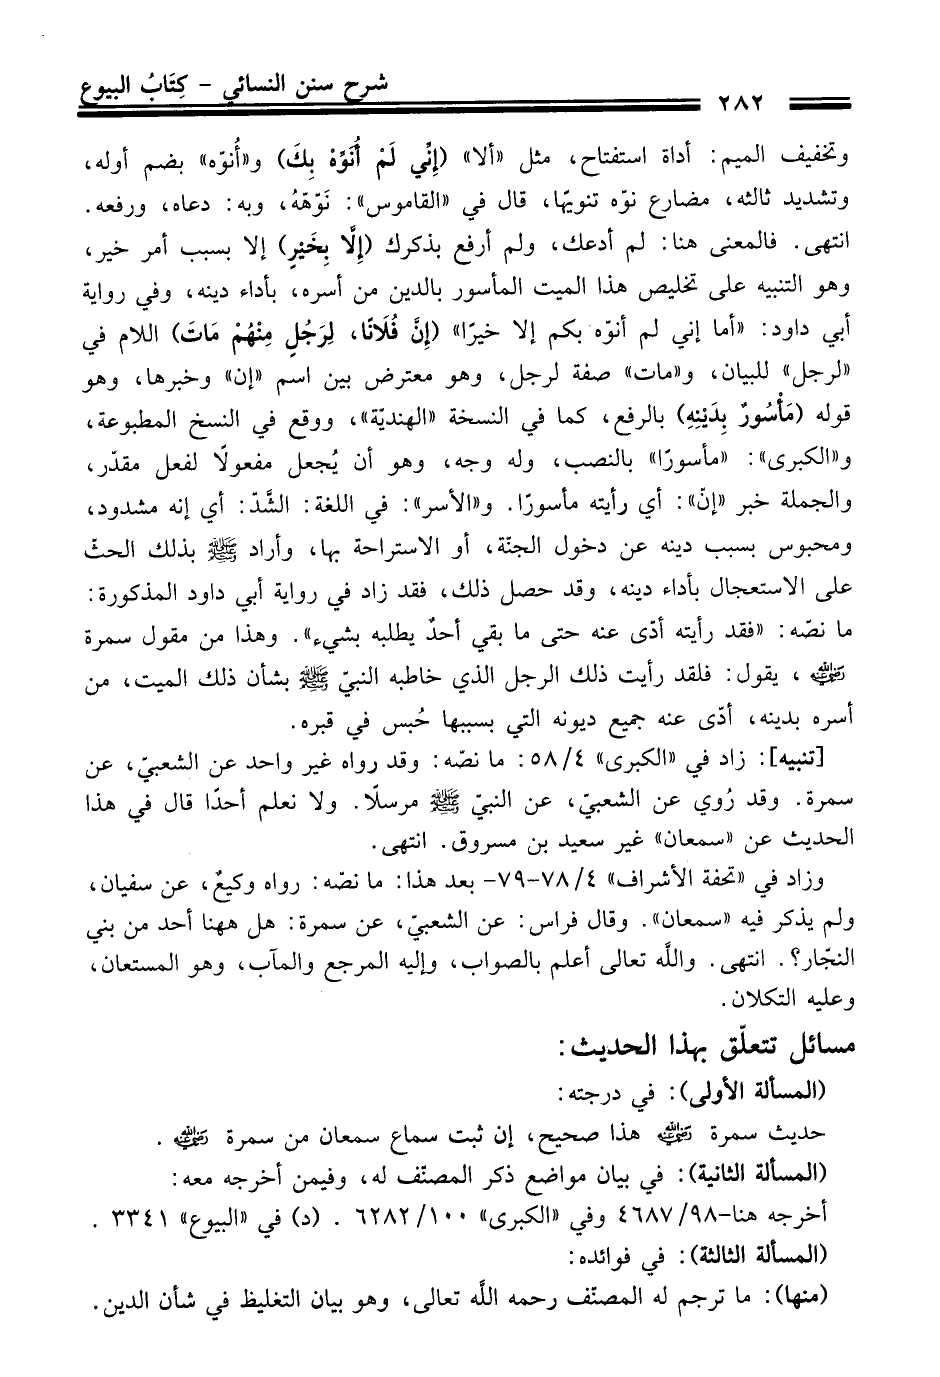 شرح سنن النسائي - كِتَابُ البيوع
٢٨٢
وتخفيف الميم: أداة استفتاح، مثل «ألا» (إِنِّي لَمْ أُنَوِّهْ بِكَ) و«أُنوّه» بضم أوله،
وتشديد ثالثه، مضارع نوّه تنويهًا، قال في «القاموس»: نَوّهَهُ، وبه: دعاه، ورفعه.
انتهى. فالمعنى هنا: لم أدعك، ولم أرفع بذكرك (إِلَّا بِخَيْرٍ) إلا بسبب أمر خير،
وهو التنبيه على تخليص هذا الميت المأسور بالدين من أسره، بأداء دينه، وفي رواية
أبي داود: «أما إني لم أنوّه بكم إلا خيرًا» (إِنَّ فُلَانًا، لِرَجُلٍ مِنْهُمْ مَاتَ) اللام في
«لرجل» للبيان، و«مات» صفة لرجل، وهو معترض بين اسم «إن» وخبرها، وهو
قوله (مَأْسُورٌ بِدَيْنِهِ) بالرفع، كما في النسخة «الهنديّة»، ووقع في النسخ المطبوعة،
و«الكبرى»: «مأسورًا» بالنصب، وله وجه، وهو أن يُجعل مفعولًا لفعل مقدّر،
والجملة خبر «إنّ»: أي رأيته مأسورًا. و«الأسر»: في اللغة: الشَّدّ: أي إنه مشدود،
ومحبوس بسبب دينه عن دخول الجنّة، أو الاستراحة بها، وأراد ﷺ بذلك الحثّ
على الاستعجال بأداء دينه، وقد حصل ذلك، فقد زاد في رواية أبي داود المذكورة:
ما نصّه: «فقد رأيته أدّى عنه حتى ما بقي أحدٌ يطلبه بشيء». وهذا من مقول سمرة
رضي الله عنه، يقول: فلقد رأيت ذلك الرجل الذي خاطبه النبيّ ﷺ بشأن ذلك الميت، من
أسره بدينه، أدّى عنه جميع ديونه التي بسببها حُبس في قبره.
[تنبيه]: زاد في «الكبرى» ٥٨/٤: ما نصّه: وقد رواه غير واحد عن الشعبيّ، عن
سمرة. وقد رُوي عن الشعبيّ، عن النبيّ ﷺ مرسلًا. ولا نعلم أحدًا قال في هذا
الحديث عن «سمعان» غير سعيد بن مسروق. انتهى.
وزاد في «تحفة الأشراف» ٧٨/٤-٧٩- بعد هذا: ما نصّه: رواه وكيعٌ، عن سفيان،
ولم يذكر فيه «سمعان». وقال فراس: عن الشعبيّ، عن سمرة: هل ههنا أحد من بني
النجّار؟. انتهى. والله تعالى أعلم بالصواب، وإليه المرجع والمآب، وهو المستعان،
وعليه التكلان.
مسائل تتعلّق بهذا الحديث:
(المسألة الأولى): في درجته:
حديث سمرة رضي الله عنه هذا صحيح، إن ثبت سماع سمعان من سمرة رضي الله عنه.
(المسألة الثانية): في بيان مواضع ذكر المصنّف له، وفيمن أخرجه معه:
أخرجه هنا-٩٨/ ٤٦٨٧ وفي «الكبرى» ١٠٠/ ٦٢٨٢ . (د) في «البيوع» ٣٣٤١ .
(المسألة الثالثة): في فوائده:
(منها): ما ترجم له المصنّف رحمه الله تعالى، وهو بيان التغليظ في شأن الدين.